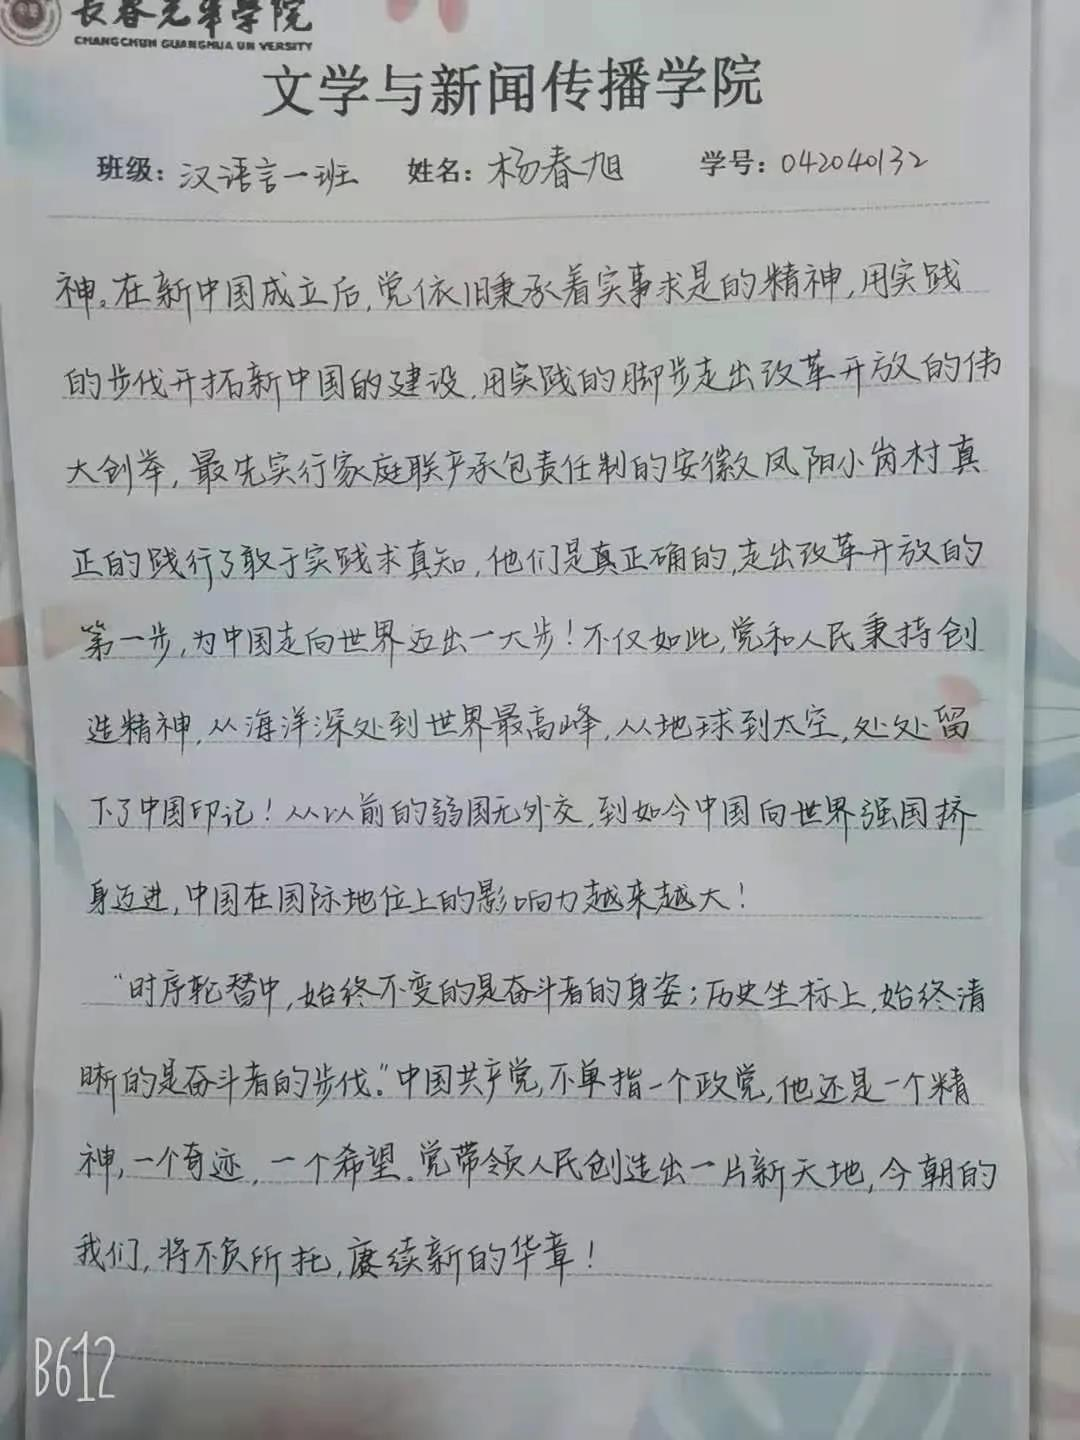 长春光华学院
CHANGCHUN GUANGHUA UNIVERSITY
文学与新闻传播学院
班级：汉语言一班 姓名：杨春旭 学号：042040132
神。在新中国成立后，党依旧秉承着实事求是的精神，用实践
的步伐开拓新中国的建设，用实践的脚步走出改革开放的伟
大创举，最先实行家庭联产承包责任制的安徽凤阳小岗村真
正的践行了敢于实践求真知，他们是真正确的，走出改革开放的
第一步，为中国走向世界迈出一大步！不仅如此，党和人民秉持创
造精神，从海洋深处到世界最高峰，从地球到太空，处处留
下了中国印记！从以前的弱国无外交，到如今中国向世界强国挤
身迈进，中国在国际地位上的影响力越来越大！
“时序轮替中，始终不变的是奋斗者的身姿；历史坐标上，始终清
晰的是奋斗者的步伐。”中国共产党，不单指一个政党，他还是一个精
神，一个奇迹，一个希望。党带领人民创造出一片新天地，今朝的
我们，将不负所托，赓续新的华章！
B612